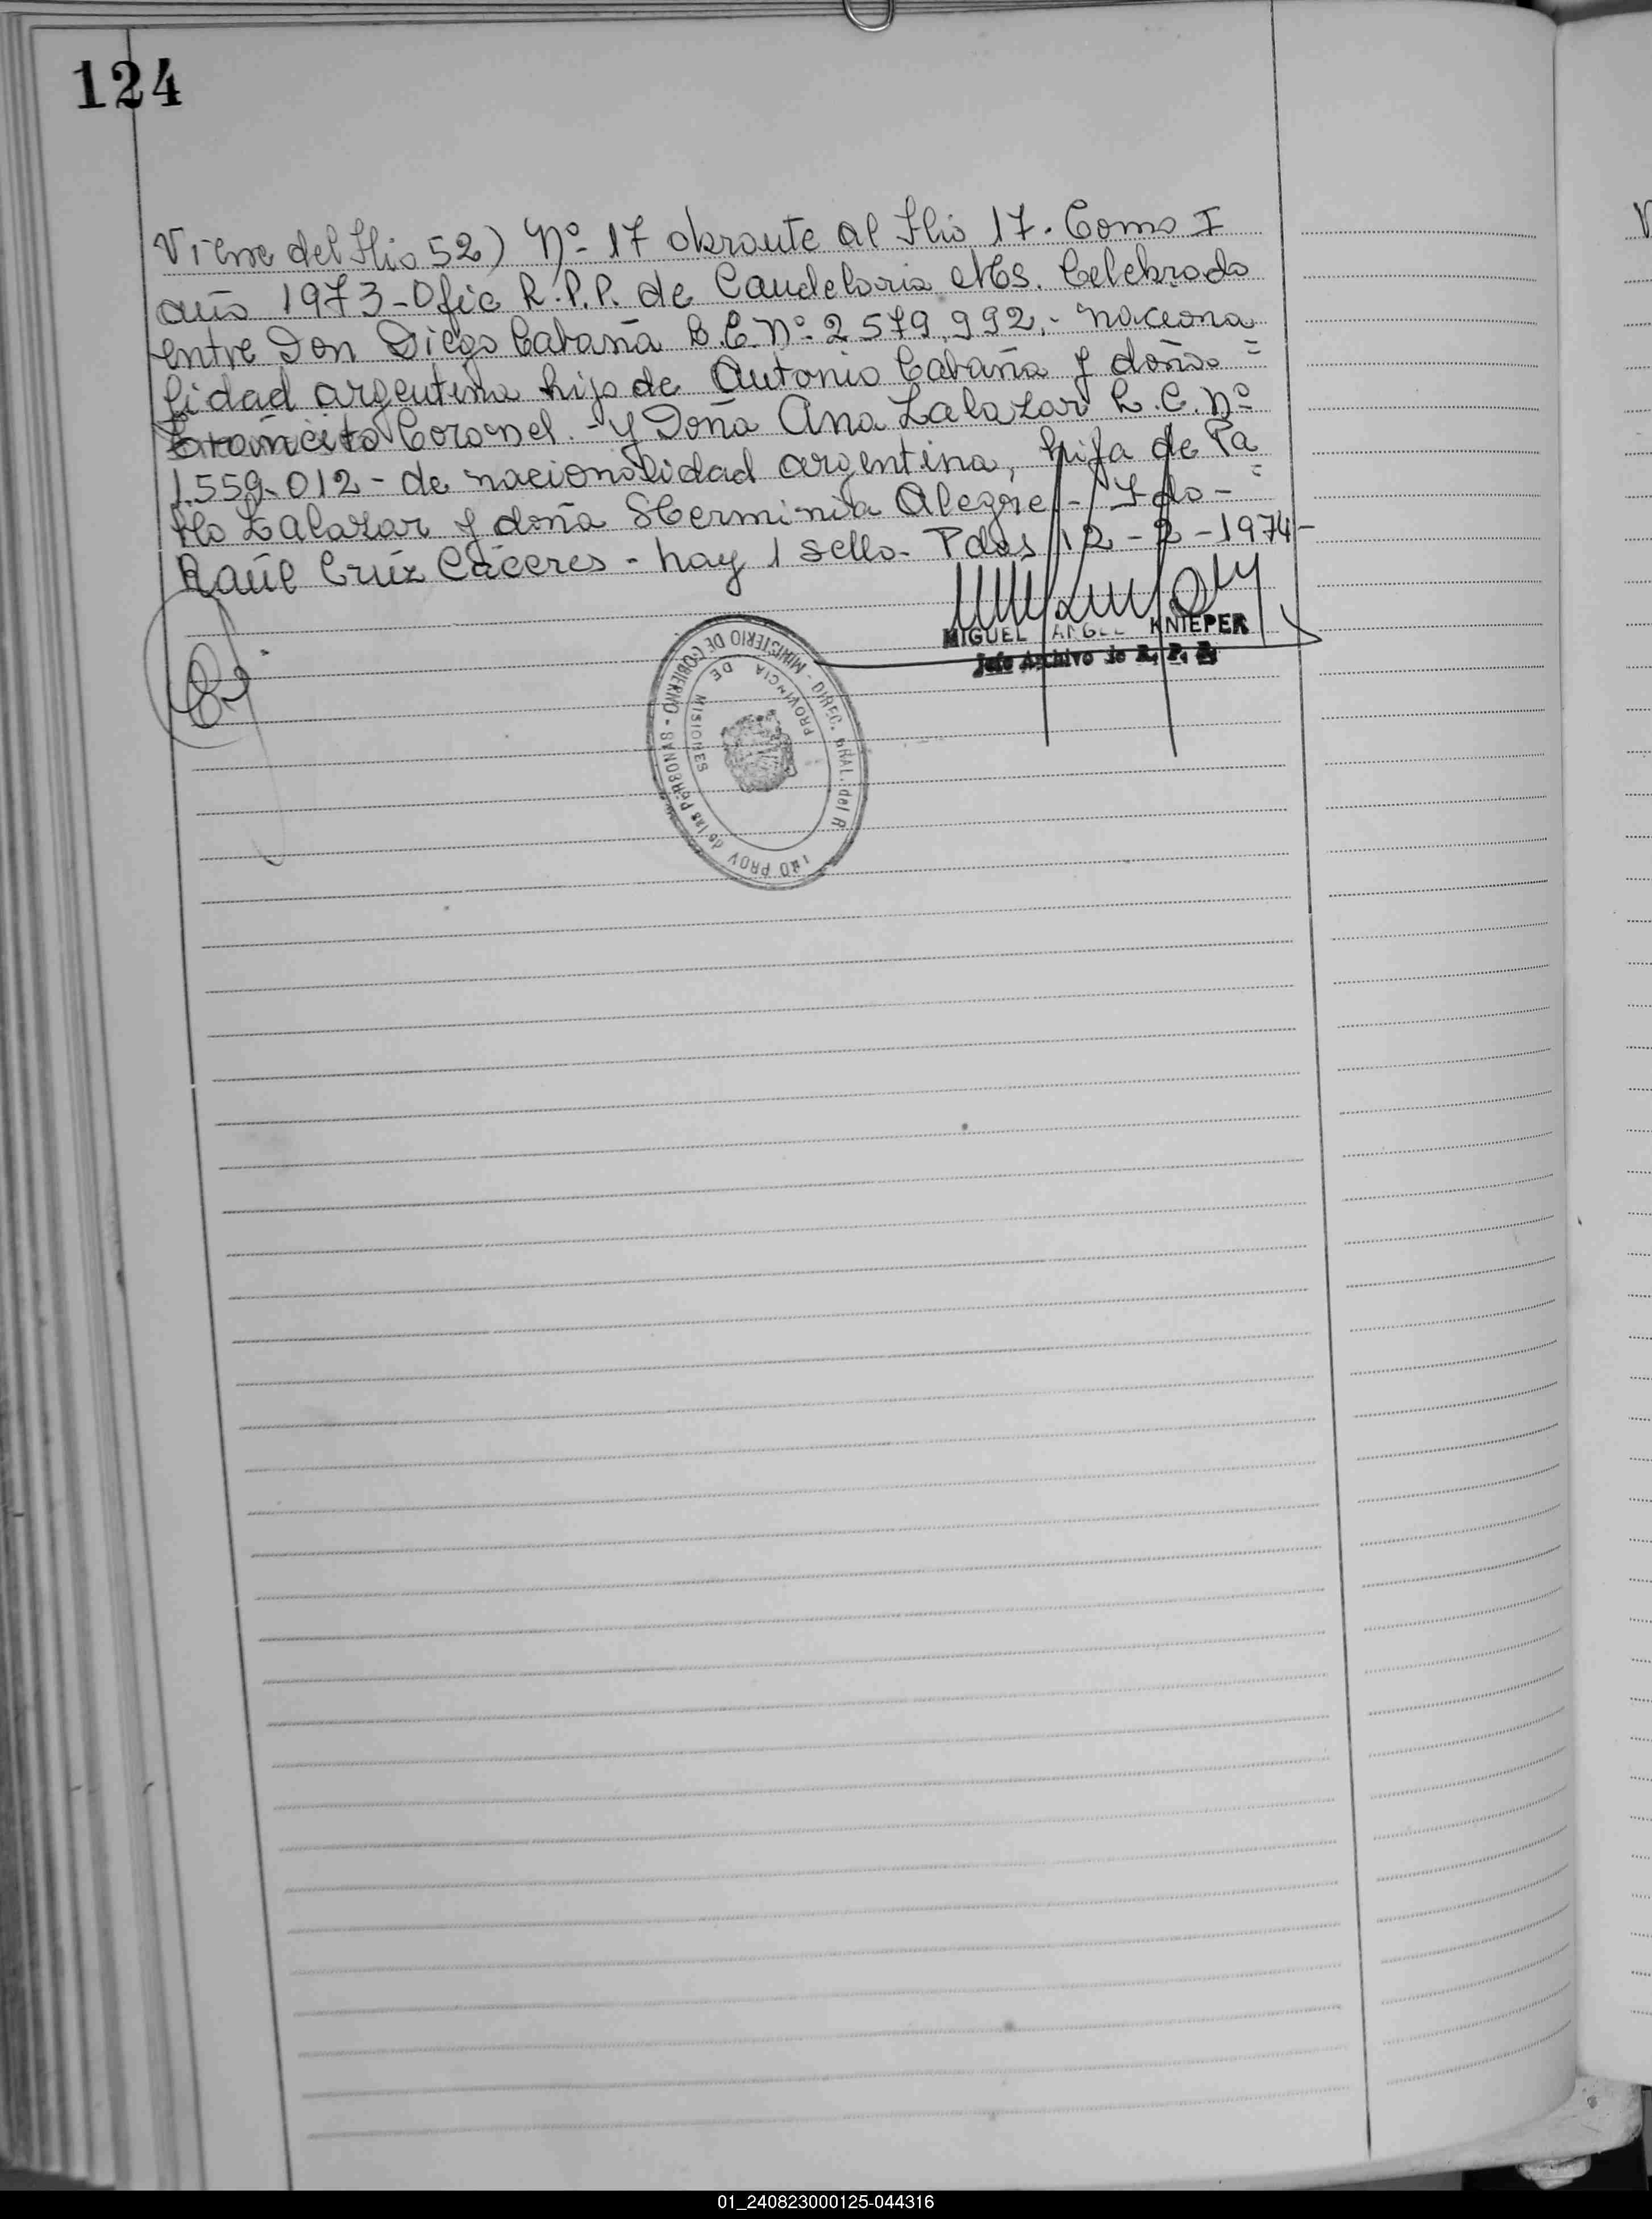 124
Viene del Flio 52) Nº 17 obrante al Flio 17. Tomo I
año 1973 - Ofic R.P.P. de Candelaria Mcs. Celebrado
entre Don Diego Cabaña C.I. Nº 2.579.992.- naciona
lidad argentina hijo de Antonio Cabaña y doña =
Francisca Coronel. - y Doña Ana Zalazar L.C. Nº
1.559.012 - de nacionalidad argentina, hija de Pa =
blo Zalazar y doña Herminia Alegre - Fdo -
Raúl Cruz Cáceres - hay 1 sello - Pdas 12 - 2 - 1974 -
MIGUEL ANGEL KNIEPER
Jefe Archivo de R. P. P.
MINISTERIO DE GOBIERNO - DIREC. GRAL. del R PROV de las PERSONAS
PROVINCIA DE MISIONES
01_240823000125-044316